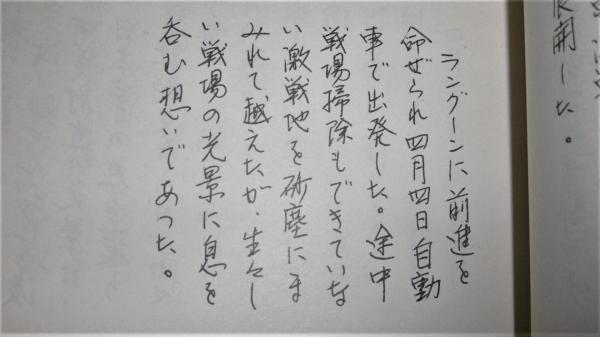 開した。
ラングーンに前進を
命ぜられ四月四日自動
車で出発した。途中
戦場掃除もできていな
い激戦地を砂塵にま
みれて越えたが、生々し
い戦場の光景に息を
呑む想いであった。